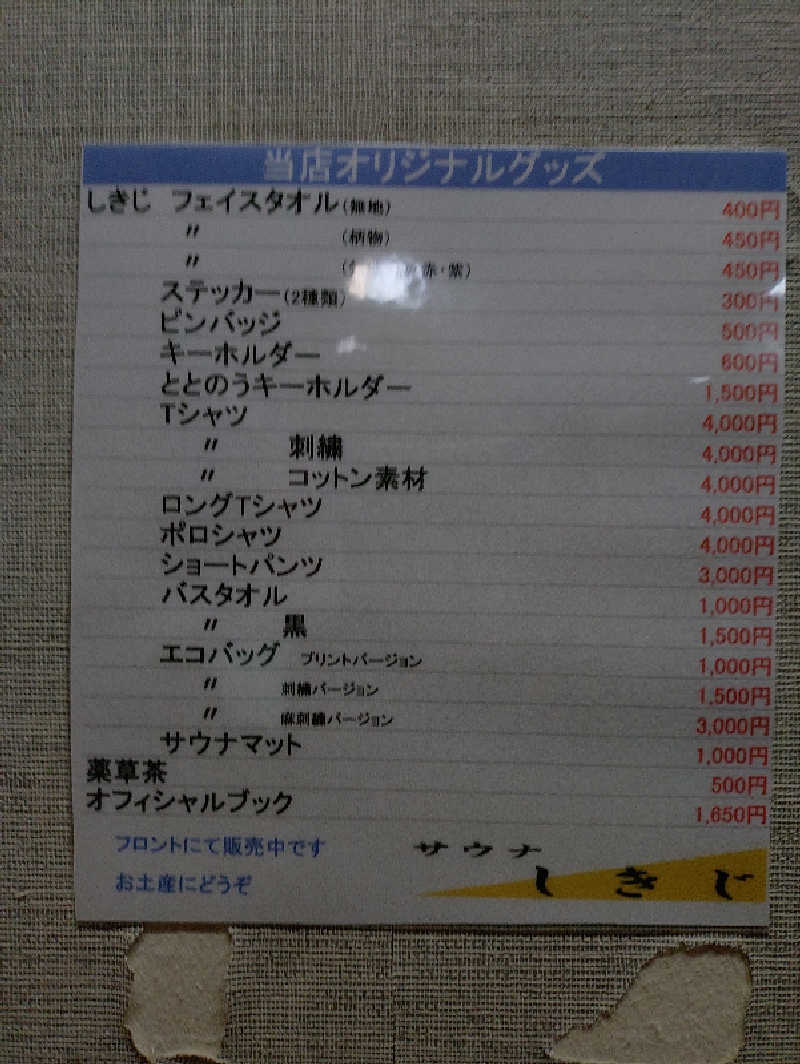 当店オリジナルグッズ
しきじ フェイスタオル(無地) 400円
〃 (柄物) 450円
〃 赤・紫) 450円
ステッカー(2種類) 300円
ピンバッジ 500円
キーホルダー 600円
ととのうキーホルダー 1,500円
Tシャツ 4,000円
〃 刺繍 4,000円
〃 コットン素材 4,000円
ロングTシャツ 4,000円
ポロシャツ 4,000円
ショートパンツ 3,000円
バスタオル 1,000円
〃 黒 1,500円
エコバッグ プリントバージョン 1,000円
〃 刺繍バージョン 1,500円
〃 麻刺繍バージョン 3,000円
サウナマット 1,000円
薬草茶 500円
オフィシャルブック 1,650円
フロントにて販売中です
お土産にどうぞ
サウナ
しきじ